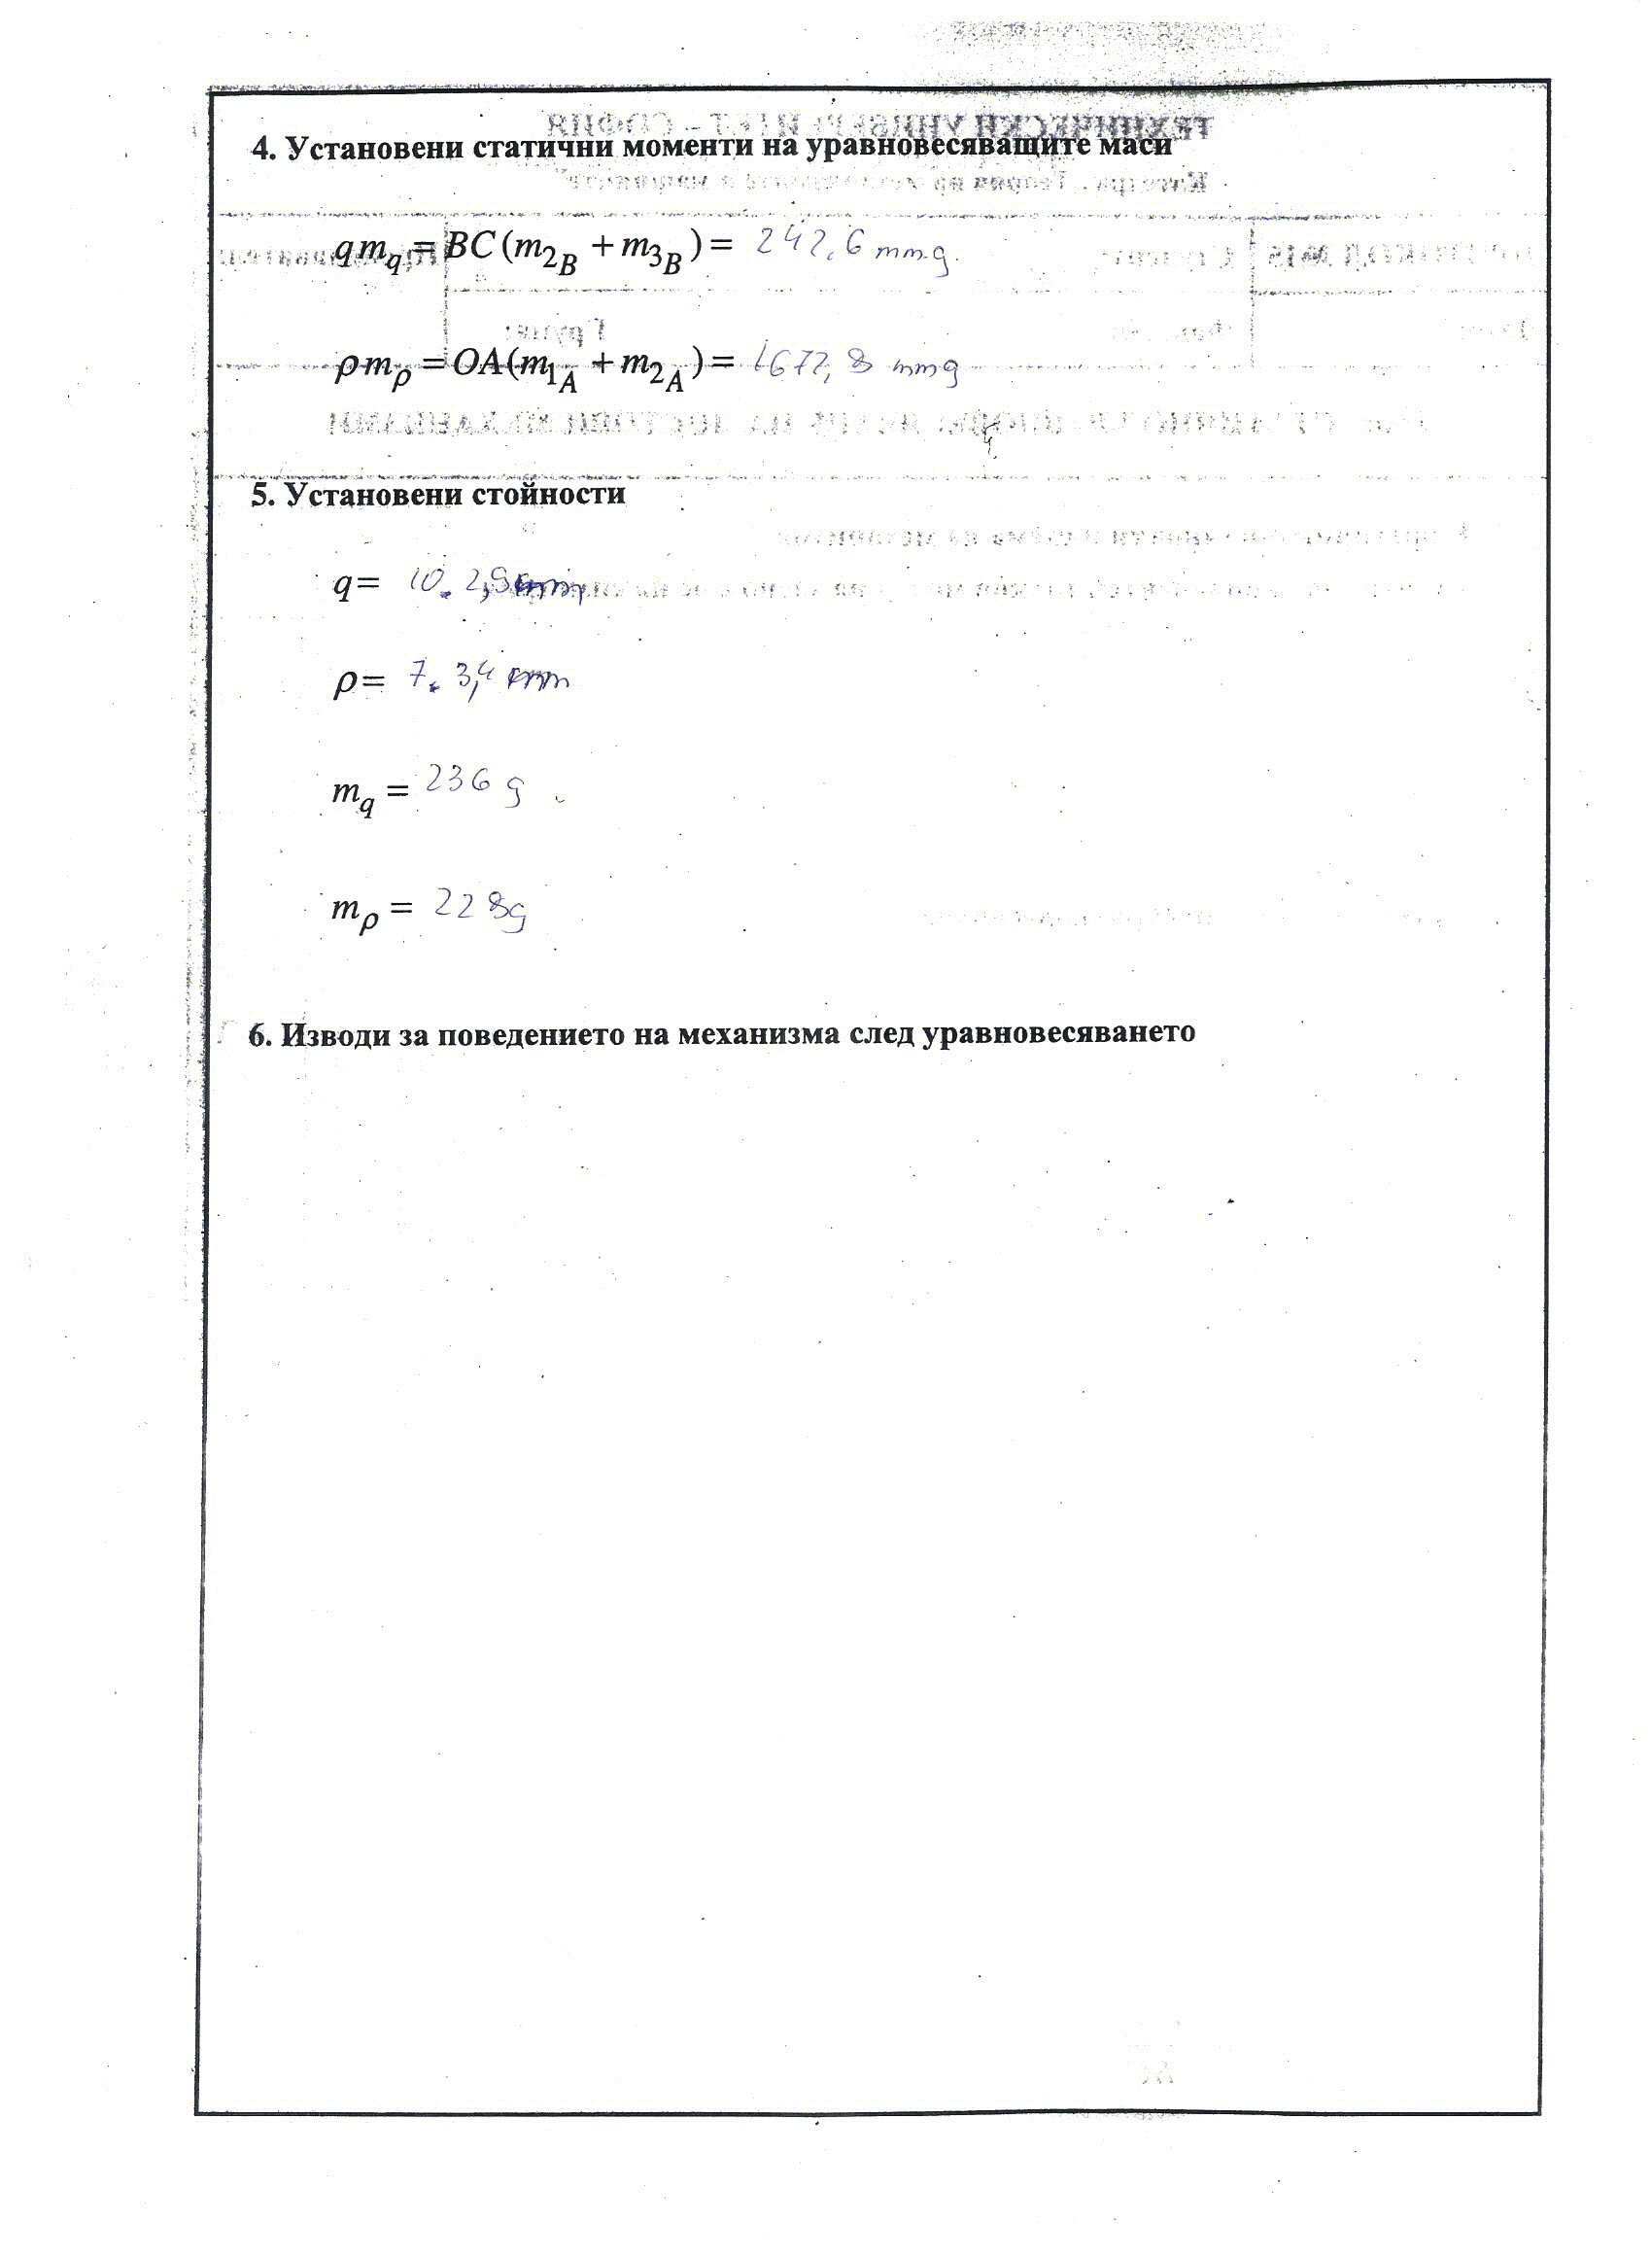 4. Установени статични моменти на уравновесяващите маси
qm_q = BC(m_2B + m_3B) = 242,6 mm.g.
ρm_ρ = OA(m_1A + m_2A) = 1672,8 mmg
5. Установени стойности
q=
ρ= 7.3,4
m_q = 236 g
m_ρ = 228g
6. Изводи за поведението на механизма след уравновесяването